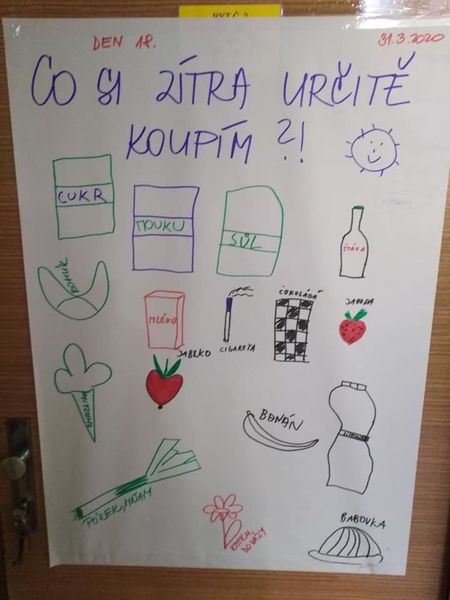 DEN 18.
31.3.2020
CO SI ZÍTRA URČITĚ
KOUPÍM ?!
CUKR
MOUKU
SŮL
ŠŤÁVA
ROHLÍK
MLÉKO
CIGARETA
ČOKOLÁDA
JAHODA
JABLKO
ZMRZLINA
BANÁN
PÓREK, MŇAM
BÁBOVKA